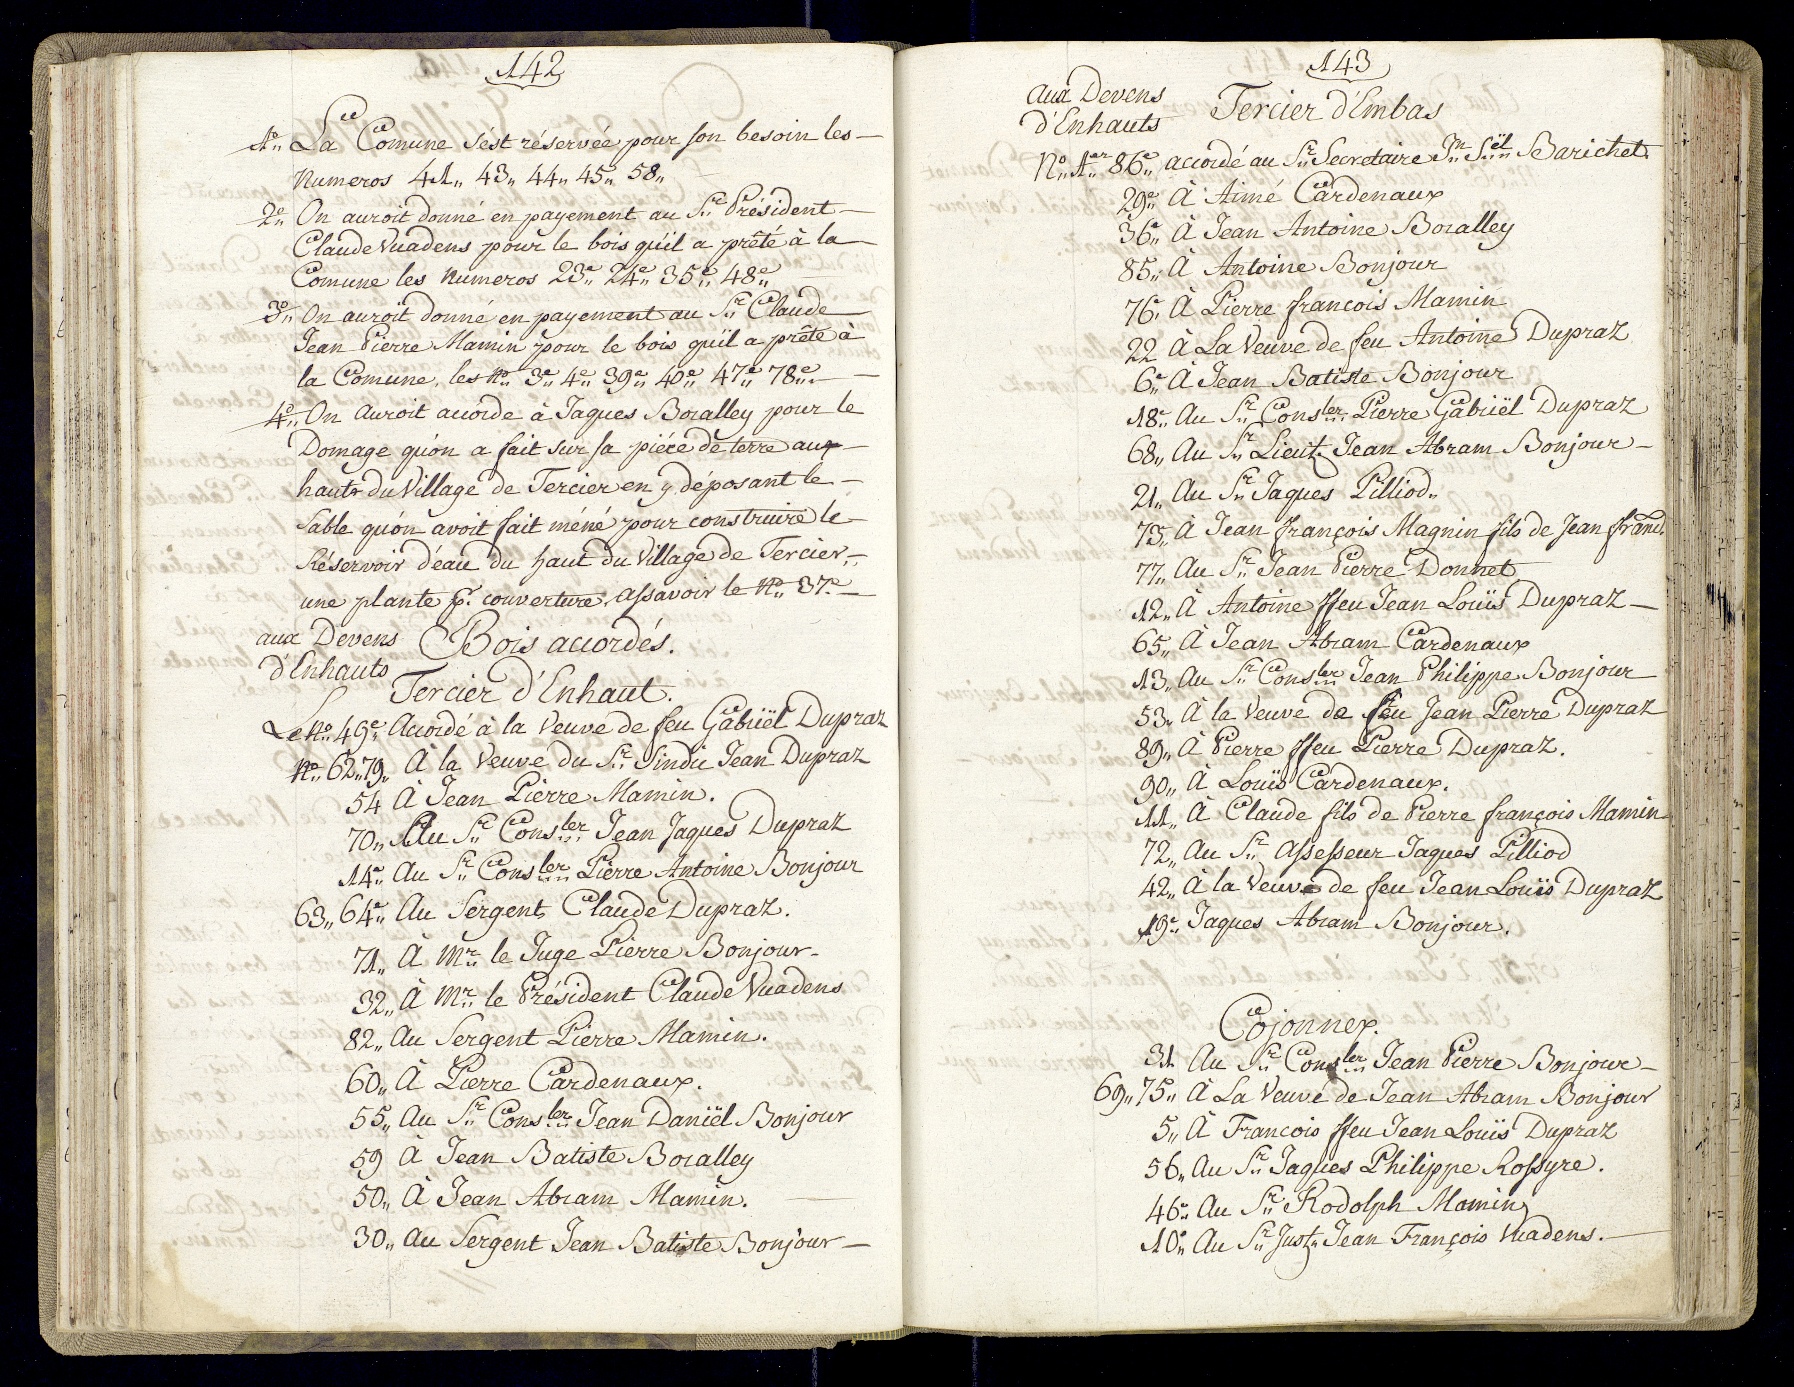 142
1.º La Comune s'ést réservée pour son besoin les
Numeros 41,, 43,, 44,, 45,, 58,,
2.º On auroit donné en payement au S.r Président
Claude Vuadens pour le bois qu'il a prêté à la
Comune les Numeros 23.e 24.e 35.e 48.e
3.º On auroït donné en payement au S.r Claude
Jean Pierre Mamin pour le bois qu'il a prêté à
la Comune, les N.º 3.e 4.e 39.e 40.e 47.e 78.e
4.º On Auroit acorde à Jaques Boralley pour le
Domage qu'on a fait sur sa piéce de terre aux
hauts du Village de Tercier en y déposant le
Sable qu'on avoit fait méné pour construire le
Réservoir d'éau du haut du Village de Tercier,,
une plante p.r couverture, assavoir le N.º 37.e
aux Devens Bois accordés.
d'Enhauts
Tercier d'Enhaut.
Le N.º 49.e Acordé à la Veuve de feu Gabriël Dupraz
N.º 62,,79,, À la Veuve du S.r Sindic Jean Dupraz
54 À Jean Pierre Mamin.
70,, Au S.r Cons.ler Jean Jaques Dupraz
14.e Au S.r Cons.ler Pierre Antoine Bonjour
63,, 64.e Au Sergent Claude Dupraz.
71,, À M.r le Juge Pierre Bonjour
32,, À M.r le Président Claude Vuadens
82,, Au Sergent Pierre Mamin.
60,, À Pierre Cardenaux.
55,, Au S.r Cons.ler Jean Daniël Bonjour
59 À Jean Batiste Boralley
50,, À Jean Abram Mamin.
30,, Au Sergent Jean Batiste Bonjour
143
Aux Devens Tercier d'Embas
d'Enhauts
N.º 1.er 86.e accordé au S.r Secretaire J.n S.ël Barichet.
29.e À Aimé Cardenaux
36.e À Jean Antoine Boralley
85,, À Antoine Bonjour
76.e À Pierre francois Mamin
22 À La Veuve de feu Antoine Dupraz
6.e À Jean Batiste Bonjour
18.e Au S.r Cons.ler Pierre Gabriël Dupraz
68,, Au S.r Lieut. Jean Abram Bonjour
21,, Au S.r Jaques Pilliod,,
73,, À Jean françois Magnin fils de Jean franc.
77,, Au S.r Jean Pierre Donnet
12,, À Antoine ffeu Jean Louïs Dupraz
65,, À Jean Abram Cardenaux
13,, Au S.r Cons.ler Jean Philippe Bonjour
53,, À la Veuve de feu Jean Pierre Dupraz
89,, À Pierre ffeu Pierre Dupraz.
90,, À Louïs Cardenaux.
11,, À Claude fils de Pierre françois Mamin
72,, Au S.r Assesseur Jaques Pilliod
42,, À la Veuve de feu Jean Louïs Dupraz
19.e Jaques Abram Bonjour.
Cojonnex.
31. Au S.r Cons.ler Jean Pierre Bonjour
69,, 75,, À La Veuve de Jean Abram Bonjour
5,, À Francois ffeu Jean Louïs Dupraz
56,, Au S.r Jaques Philippe Rossyre.
46.e Au S.r Rodolph Mamin
10.e Au S.r Just. Jean François Vuadens.